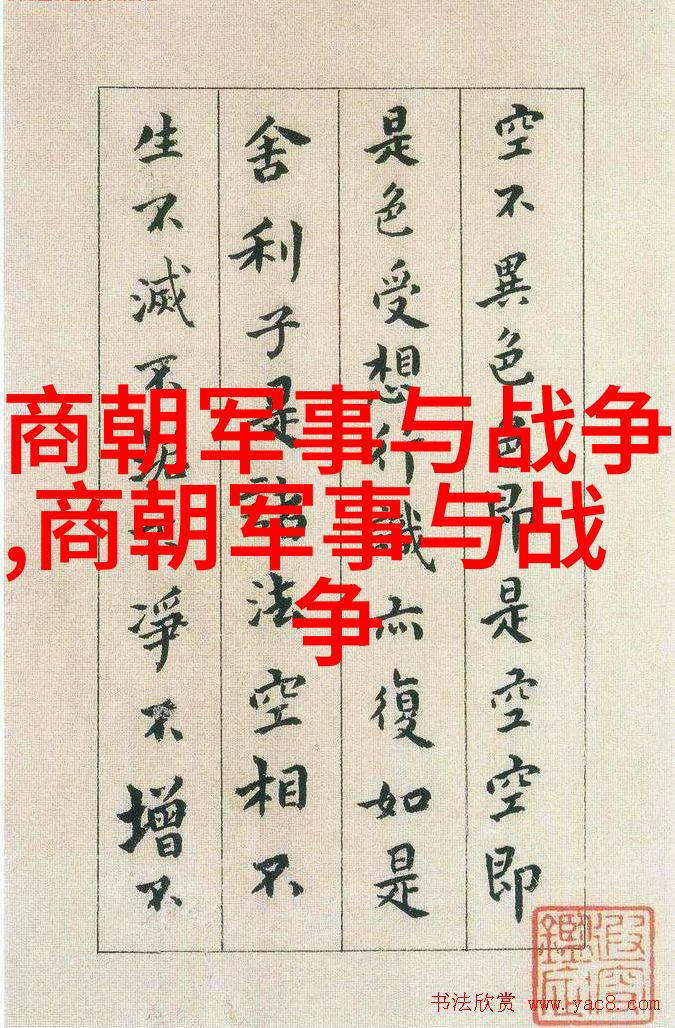 空不異色色即是空空即
是色受想行識亦復如是
舍利子是諸法空相不
生不滅不垢不淨不增不
商朝军事与战争
,商朝军事与战
争
书法欣赏 www.yac8.com